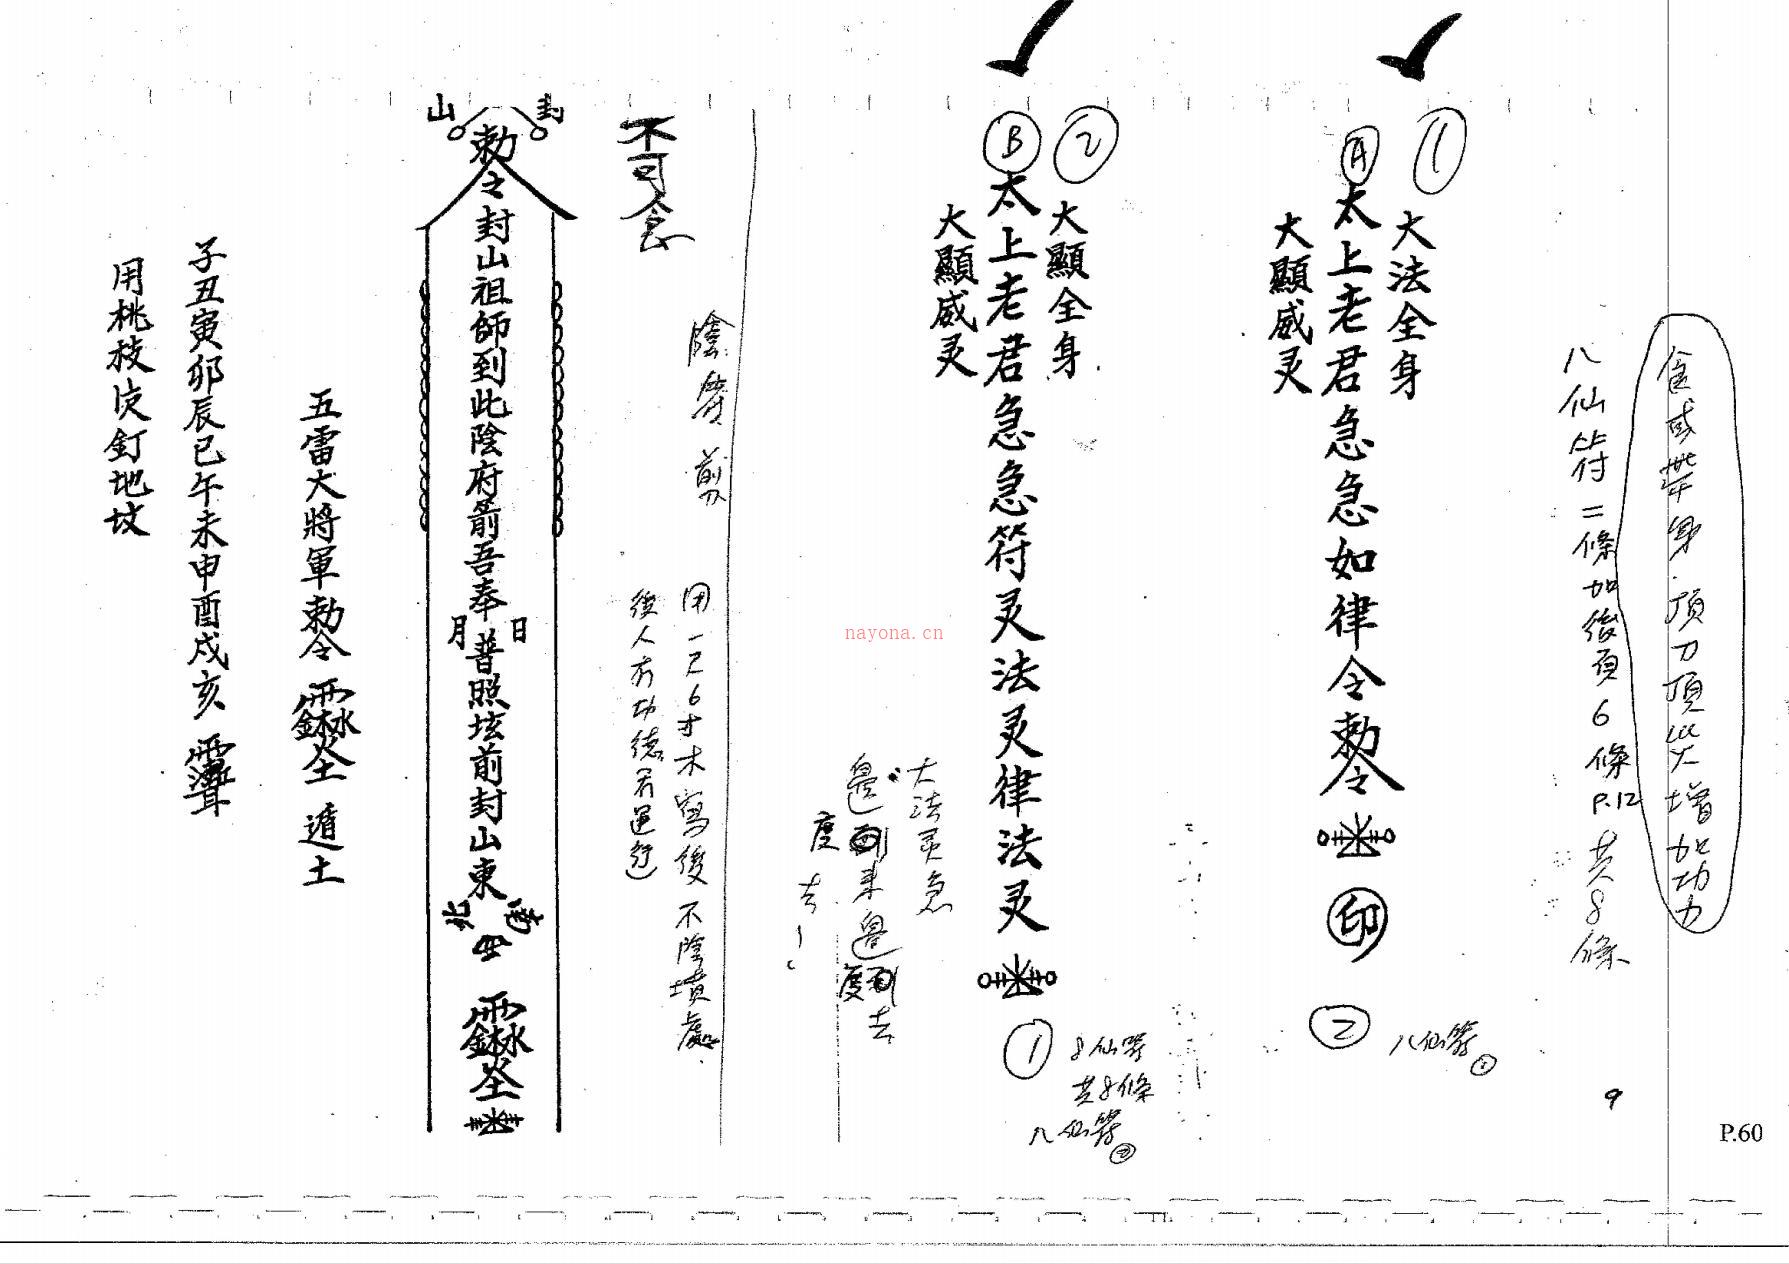 食或带身.頂刀頂火增加功力
八仙符二條加後頁6條P.12共8條
①
Ⓐ
大法全身
太上老君急急如律令勅令
印
大顯威灵
②
八仙符①
②
Ⓑ
大顯全身
太上老君急急符灵法灵律法灵
大顯威灵
①
8仙符
共8條
八仙符②
大法灵急
度去
不可食
用一尺6寸木寫後不陰墳處.
後人有功德君運行)
封山
勅令封山祖師到此陰府箭吾奉
日月
普照垓前封山東
南
北
西
五雷大將軍勅令
遁土
子丑寅卯辰巳午未申酉戌亥
用桃枝伏釘地坟
nayona.cn
9
P.60